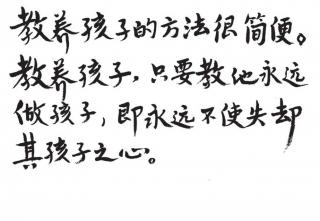 教养孩子的方法很简便。
教养孩子，只要教他永远
做孩子，即永远不使失却
其孩子之心。